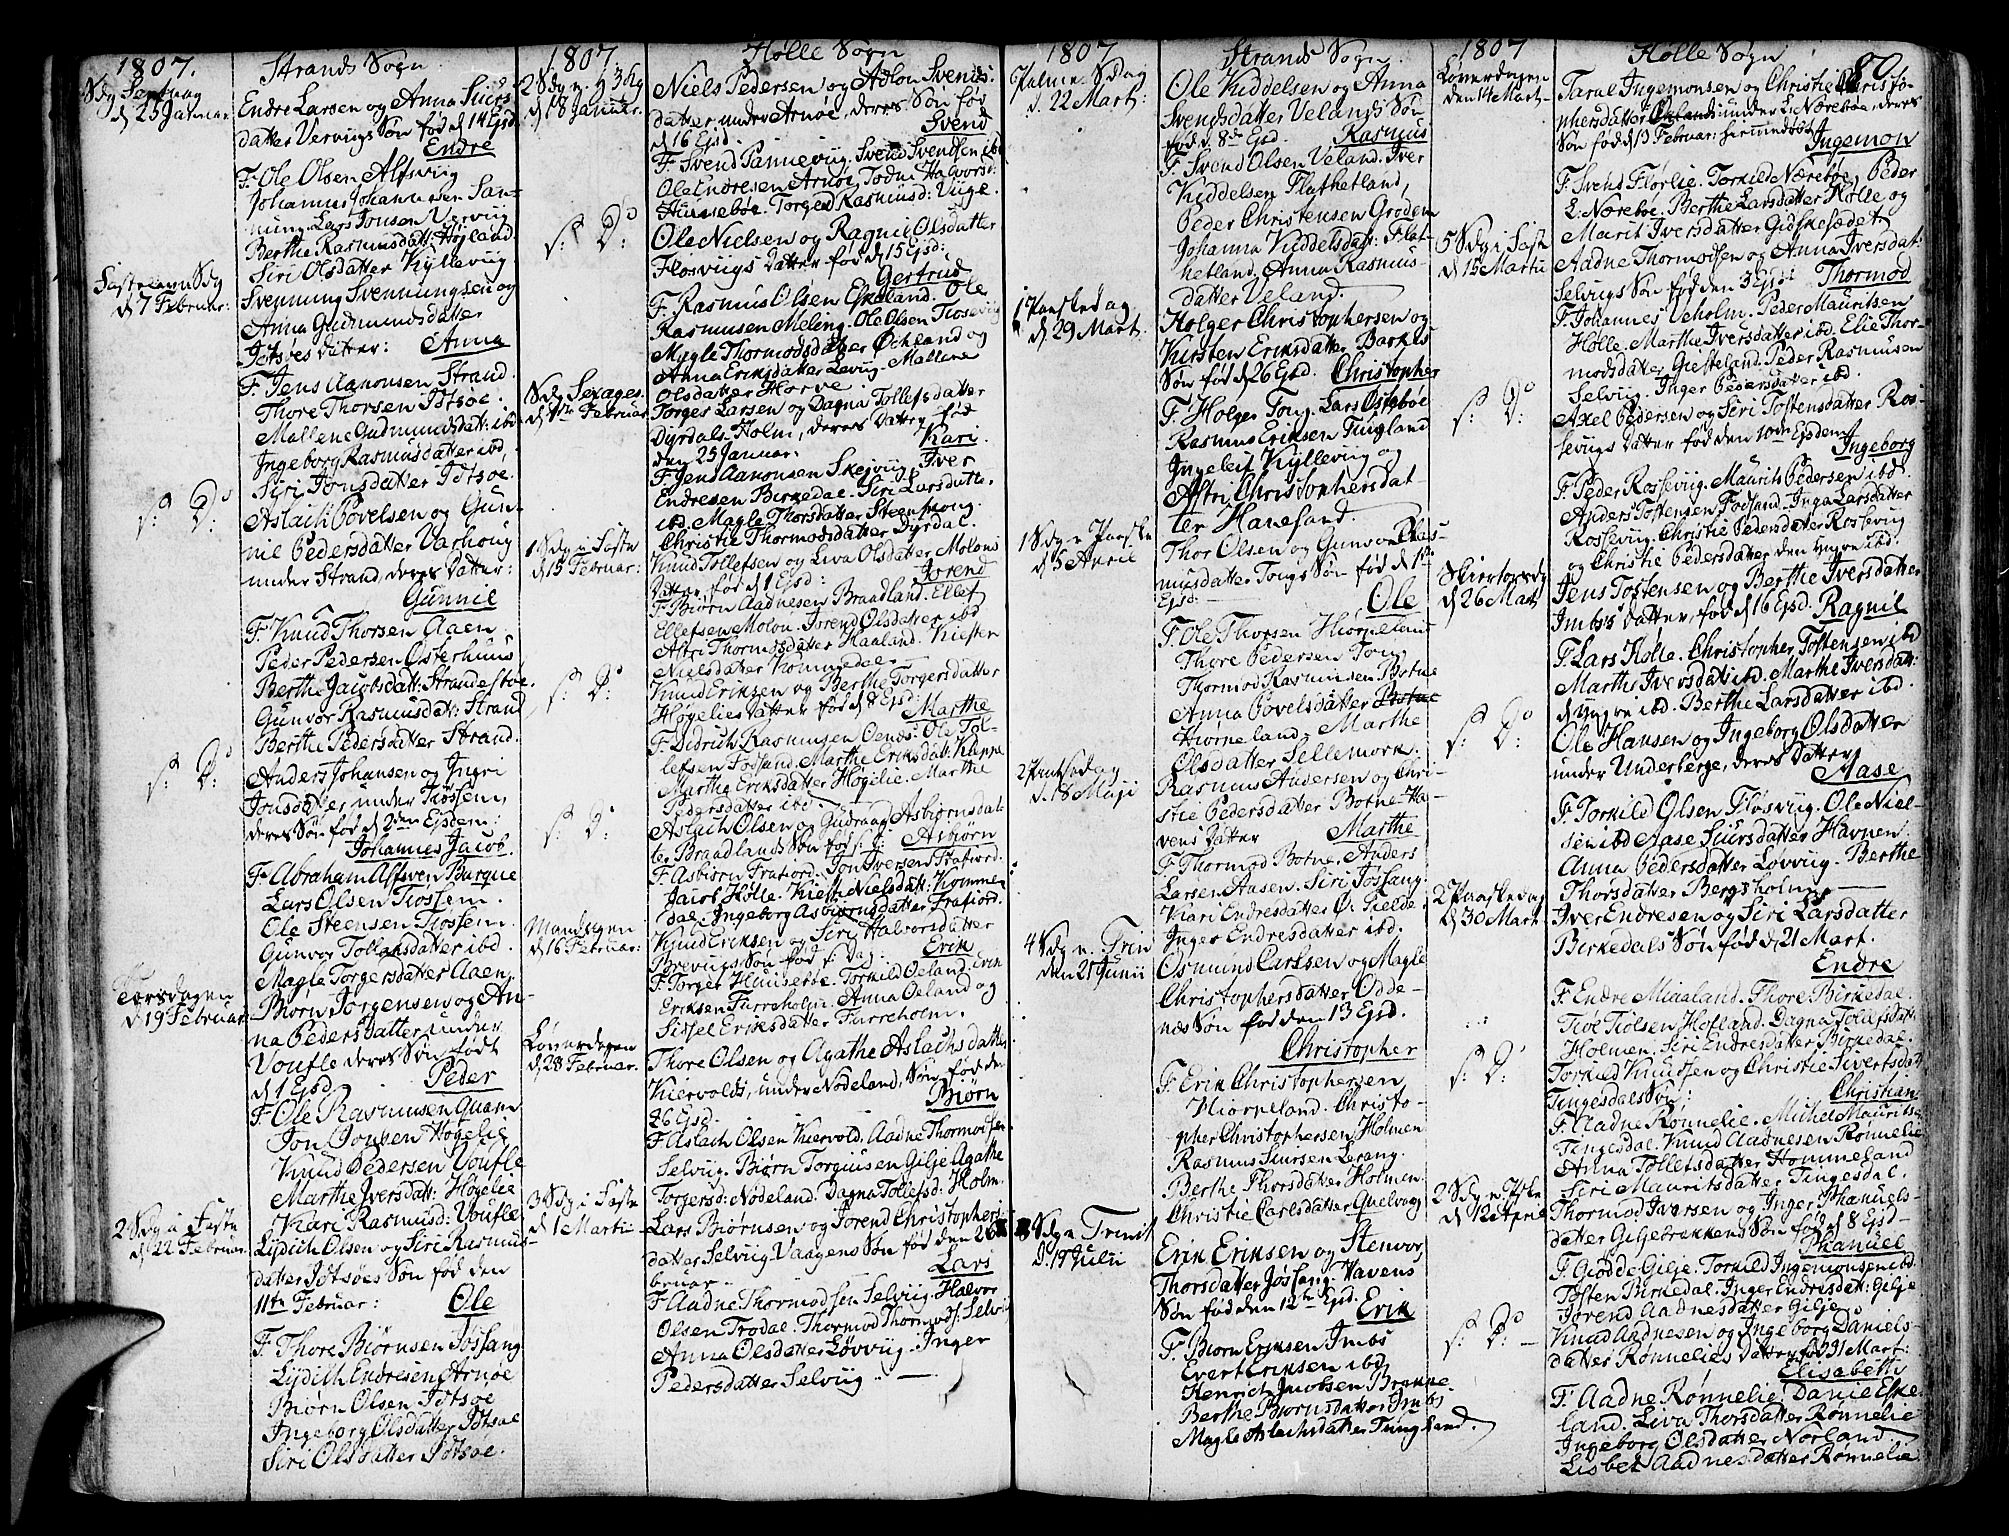 1807.
Strands Sogn.
d 25 Januar.
Endre Larsen og Anna Siurs
datter Vervigs Søn fød d 14 Ejsd
Endre
F. Ole Olsen Alsvig
Johannes Johannesen Tan-
nung. Lars Jonsen Vervig
Berthe Rasmusdatt: Højland
Siri Olsdatter Kyllevig
Fastelavns Sdg
d 7 Februar:
Svennung Svennungsen og
Anna Gudmundsdatter
Jøtsøes datter: Anna
F. Jens Aanonsen Strand.
Thore Thorsen Jøtsøe.
Mallene Gudmundsdatt: ibd
Ingeborg Rasmusdatter ibd,
Siri Jonsdatter Jøtsøe.
s: D:
Aslach Povelsen og Gun-
nil Pedersdatter Varhoug
under Strand, deres Datter:
Gunnil
F. Knud Thorsen Aaen
Peder Pedersen Østerhuus
Berthe Jacobsdatt: Strandestøe.
Gunvor Rasmusdatt: Strand
Berthe Pedersdatter Strand.
s: D:
Anders Johansen og Ingri
Jonsdatter under Tiøssem,
deres Søn fød d 2den Ejsdem:
Johannes Jacob.
F. Abraham Barque
Lars Olsen Tiøssem.
Ole Steensen Tiøssem.
Gunvor Tollaksdatter ibd.
Magle Torgersdatter Aaen
Torsdagen
d 19 Februar
Biørn Jørgensen og An-
na Pedersdatter under
Voufle deres Søn født
d 1 Ejsd. Peder
F. Ole Rasmusen Quam
Jon Høgelie
Knud Pedersen Voufle
Marthe Iversdatt: Høgelie
Kari Rasmusd: Voufle
2 Sdg i Faste
d 22 Februar.
Lydich Olsen og Siri Rasmus-
datter Jøtsøes Søn fød den
11te Februar: Ole
F. Thore Biørnsen Jøssang
Lydich Endresen Arnøe
Biørn Olsen Jøtsøe
Ingeborg Olsdatter Jøtsøe
Siri Olsdatter Jøtsøe.
1807.
Holle Sogn
d 18 Januar.
Niels Pedersen og Adlou Svends-
datter under Arnøe, deres Søn fød
d 16 Ejsd. Svend
F. Svend Pannevig. Svend Svendsen ibd
Ole Endresen Arnøe. Todne Halvorsd:
Hunnebøe. Torger Rasmusd: Vige.
s: D:
Ole Nielsen og Ragnil Olsdatter
Fløsvigs datter fød d 15 Ejsd:
Gertrud
F. Rasmus Olsen Eskeland. Ole
Rasmusen Meling. Ole Olsen Fløsvig
Mygle Thormodsdatter Ørkland og
Anna Eriksdatter Levig. Mallene
Olsdatter Horve
Sdg Sexages.
d 1ste Februar
Torges Larsen og Dagna Tollefsdatter
Dyrdals-Holm, deres Datter fød
den 25 Januar. Kari
F. Jens Aanonsen Skejvig. Iver
Endresen Birkedal. Siri Larsdatter
ibd. Magle Thorsdatter
Christie Thormodsdatter Dyrdal.
1 Sdg i Faste
d 15 Februar:
Knud Tollefsen og Liva Olsdatter Molaus
Datter fød d 1 Ejsd: Jorend
F. Biørn Aadnesen Braadland. Ellef
Ellefsen Molou. Jorend Olsdatter ibd
Astri Thormodsdatter Haaland. Kirsten
Nielsdatter Kommedal
s: D:
Knud Eriksen og Berthe Torgersdatter
Høgelies datter fød d 8 Ejsd:
Marthe
F. Didrich Rasmusen Oenæs. Ole Tol-
lefsen Fossand. Marthe Eriksdatt: Kleppe
Marthe Eriksdatter Høgelie. Marthe
Pedersdatter ibd.
s: D:
Aslach Olsen og Gudraag Asbiørnsdat-
ter Braadlands Søn fød s: D: Asbiørn
F. Asbiørn Frafiord. Jon Iversen Frafiord.
Jacob Holle. Kirsti Nielsdatt: Kommen
dal. Ingeborg Asbiørnsdatter Frafiord.
Mandagen
d 16 Februar:
Knud Eriksen og Siri Halvorsdatter
Brevigs Søn fød s: Dag: Erik
F. Torger Hunsebøe. Torkild Oeland. Erik
Eriksen Furreholm. Anna Oeland og
Sissel Eriksdatter Furreholm.
Løverdagen
d 28 Februar.
Thore Olsen og Agathe Aslachsdatter
Kiervolds, under Nodeland, Søn fød den
26 Ejsd. Biørn
F. Aslach Olsen Kiervold. Aadne Thormodsen
Selvig. Biørn Torgiusen Gilje Agathe
Torgersd: Nodeland. Dagna Tollefsd: Holm.
3 Sdg i Faste
d 1 Martii
Lars Biørnsen og Jorend Christophers-
datter Selvig Vaagens Søn fød den 26 Fe-
bruar. Lars
F. Aadne Thormodsen Selvig. Halvor
Olsen Trodal. Thormod Thormods: Selvig
Anna Olsdatter Løvvig. Inger
Pedersdatter Selvig.
1807
Strands Sogn.
Palme Sdag
d. 22 Mart:
Ole Kiddelsen og Anna
Svendsdatter Velands Søn
fød d. 8de Ejsd. Rasmus
F. Svend Olsen Veland. Iver
Kiddelsen Flathetland,
Peder Christensen Grodem
Johanna Kiddelsdatt: Flat-
hetland. Anna Rasmus-
datter Veland.
1 Paaskedag
d. 29 Mart.
Holger Christophersen og
Kirsten Eriksdatter Barkes
Søn fød d 26 Ejsd. Christopher
F. Holger Toug. Lars Ostebøe
Rasmus Eriksen Tungland
Ingeleif Kyllevig og
Astri Christophersdat-
ter Hanesand.
1 Sdg e. Paaske
d 5 April
Thor Olsen og Gunvor Ras-
musdatter Tougs Søn fød d 1ste
Ejsd: Ole
F. Ole Thorsen Hiørneland
Thore Pedersen Tou
Thormod Rasmusen Botne
Anna Povelsdatter Botne
Hiørneland. Marthe
Olsdatter Sellemork.
2 Pintsedag
d. 18 Maji
Rasmus Andersen og Chri-
stie Pedersdatter Botne-Ha-
vens Datter Marthe
F. Thormod Botne. Anders
Larsen Aasen. Siri Jøssang.
Kari Endresdatter Ø: Fielde.
Inger Endresdatter ibd.
4 Sdg e. Trin
den 21 Junii
Osmund Carlsen og Magle
Christophersdatter Odde-
næs Søn fød den 13 Ejsd.
Christopher
F. Erik Christophersen
Hiørneland. Christo-
pher Christophersen Holmen
Rasmus Siursen Lerang.
Berthe Thorsdatter Holmen.
Christie Carlsdatter Quelvog
8 Sdg e. Trinit
d. 19 Julii
Erik Eriksen og Stenvor
Thorsdatter Jøssang-Havens
Søn fød den 12te Ejsd. Erik
F. Biørn Eriksen Jmbs
Evert Eriksen ibd
Henrich Jacobsen Brekne
Berthe Biørnsdatter Jmbs
Magle Aslachsdatter Tungland.
1807
Holle Sogn
80.
Løverdagen
den 14 Mart.
Taral Ingemonsen og Christie Christo-
phersdatter under L. Nærebøe, deres
Søn fød d 13 Februar: hiemmedøbt
Ingemon
F. Svend Flørlie. Torkild Nærebøe, Peder
L. Nærebøe. Berthe Larsdatter Holle og
Marit Iversdatter Gidskesædet
5 Sdg i Faste
d 15 Martii
Aadne Thormodsen og Anna Iversdat:
Selvigs Søn fød den 3 Ejsd: Thormod
F. Johannes Veholm. Peder Mauritsen
Holle. Marthe Iversdatter ibd. Elie Thor-
modsdatter Giesteland. Peder Rasmusen
Selvig. Inger Pedersdatter ibd.
s: D:
Axel Pedersen og Siri Tostensdatter Ros-
sevigs datter fød den 10de Ejsdem
Ingeborg
F. Peder Rossevig. Maurits Pedersen ibd.
Anders Tostensen Fossand. Inga Larsdatter
Rossevig. Christie Pedersdatter Rossevig
og Christie Pedersdatter den yngre ibd.
Skiertorsdg
d 26 Mart
Jens Tostensen og Berthe Iversdatter
Jmbs's datter, fød d 16 Ejsd. Ragnil
F. Lars Holle. Christopher Tostensen ibd
Marthe Iversdatt: ibd. Marthe Iversdatt:
d yngre ibd. Berthe Larsdatter ibd.
s: D:
Ole Hansen og Ingeborg Olsdatter
under Underberge, deres Datter
Aase
F. Torkild Olsen Fløsvig. Ole Niel-
sen ibd Aase Siursdatter Havnen.
Anna Pedersdatter Lovvig. Berthe
Thorsdatter Bergsholm.
2 Paaskedag
d 30 Mart.
Iver Endresen og Siri Larsdatter
Birkedals Søn fød d 21 Mart.
Endre
F. Endre Miaaland. Thore Birkedal.
Tiøe Tiølsen Hofland. Dagna Tolefsdatt:
Holmen. Siri Endresdatter Birkedal.
s: D:
Torkild Knudsen og Christie Sivertsdatt
Tingesdals Søn: Christian
F. Aadne Rønnelie. Michel Maurits
Tingesdal. Knud Aadnesen Rønnelie
Anna Tollefsdatter Hommeland
Siri Mauritsdatter Tingesdal.
2 Sdg e. Paaske
d 12 April
Thormod Iversen og Inger Phanuels-
datter Giljebrekkens Søn fød d 8 Ejsd.
Phanuel
F. Giødde Gilje. Torkild Ingemonsen ibd.
Tosten Birkedal. Inger Endresdatt: Gilje
Jorend Aadnesdatter Gilje
s: D:
Knud Aadnesen og Ingeborg Daniels-
datter Rønnelies Datter fød 31 Mart:
Elisabeth
F. Aadne Rønnelie, Daniel Eske-
land. Liva Thorsdatter Rønnelie
Ingeborg Olsdatter Norland
Lisbet Aadnesdatter Rønnelie